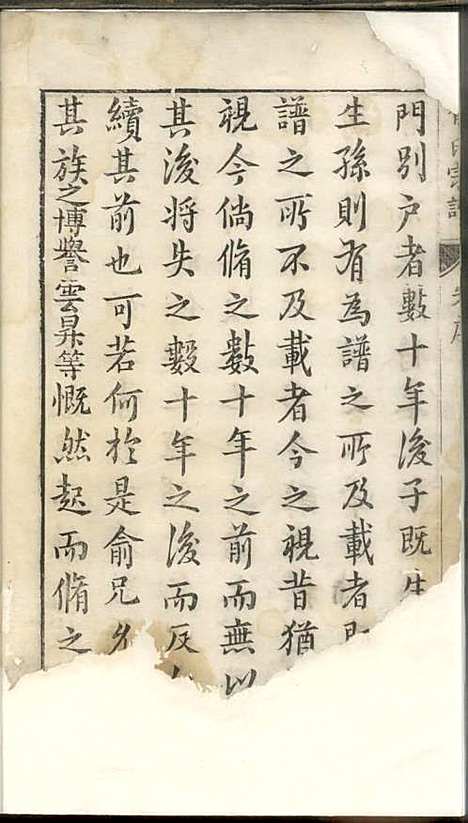 氏宗譜
序
門別戶者數十年後子既生
生孫則有為譜之所及載者
譜之所不及載者今之視昔猶
視今倘脩之數十年之前而無以
其後将失之數十年之後而反
續其前也可若何於是俞兄
其族之博譽雲昇等慨然起而脩之